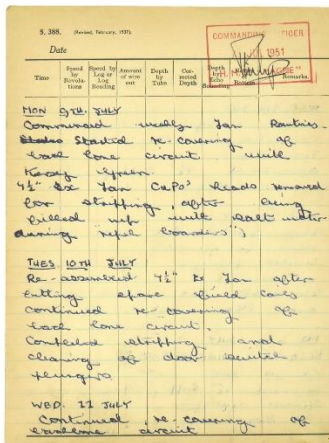 S. 388. (Revised, February, 1937).
COMMANDING OFFICER
1951
Date
Time
Speed by Revolutions
Speed by Log or Log Reading
Amount of wire out
Depth by Tube
Corrected Depth
Depth by Echo Sounding
Bottom
Remarks.
MON 9TH. JULY
Commenced weekly Fan Routines.
Started re-covering of
each bone circuit with
Green.
7½" Ex Fan heads removed
for stripping, after being
filled up with salt water
during "repel boarders".
TUES 10TH JULY
Re-assembled 7½" Ex Fan after
fitting spare field coils
continued re-covering of
each bone circuit.
Completed stripping and
cleaning of door
plungers
WED. 11 JULY
Continued re-covering of
circuit